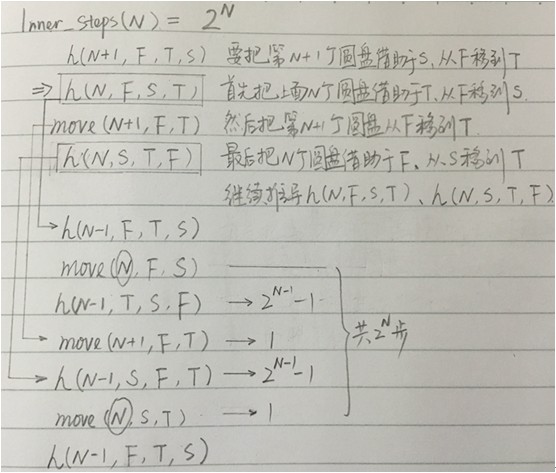 Inner_steps(N) = 2^N
h(N+1, F, T, S) 要把第N+1个圆盘借助于S、从F移到T
⇒ h(N, F, S, T) 首先把上面N个圆盘借助于T、从F移到S.
move(N+1, F, T) 然后把第N+1个圆盘从F移到T.
h(N, S, T, F) 最后把N个圆盘借助于F、从S移到T
继续推导h(N, F, S, T)、h(N, S, T, F)
h(N-1, F, T, S)
move(N, F, S)
h(N-1, T, S, F) → 2^{N-1}-1
move(N+1, F, T) → 1
共2^N步
h(N-1, S, F, T) → 2^{N-1}-1
move(N, S, T) → 1
h(N-1, F, T, S)